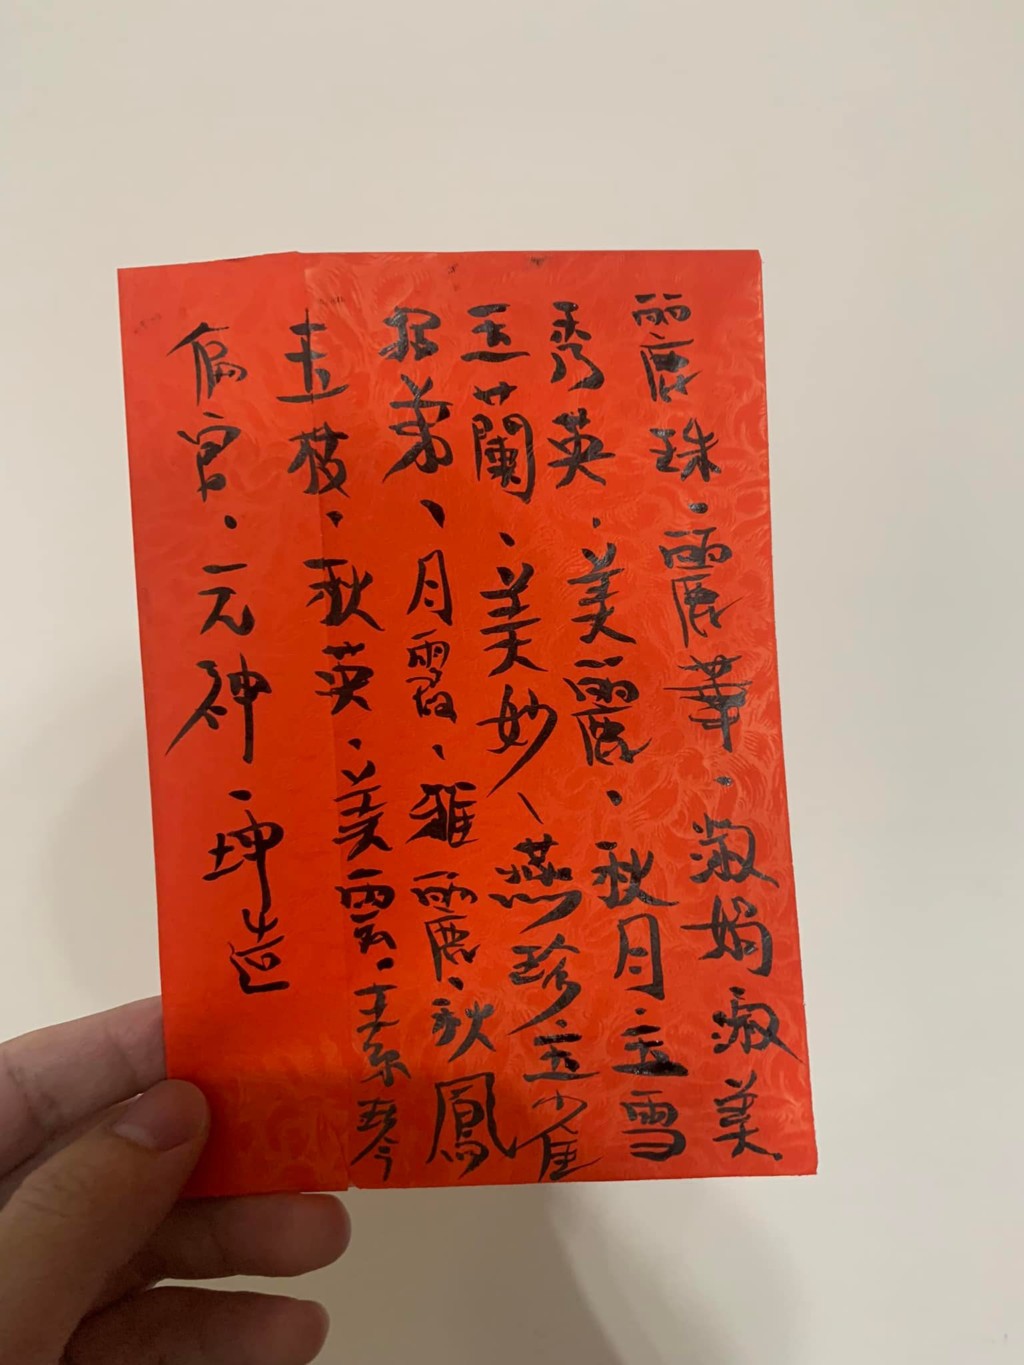 麗珠、麗華、淑娟淑美
秀英、美麗、秋月、玉雪
玉蘭、美妙、燕珍玉雀
招弟、月霞、雅麗、秋鳳
玉枝、秋英、美雲、素琴
偏官、元神、坤造